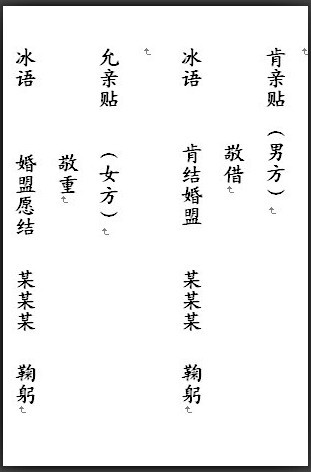 肯亲贴（男方）
敬借
冰语 肯结婚盟 某某某 鞠躬
允亲贴（女方）
敬重
冰语 婚盟愿结 某某某 鞠躬